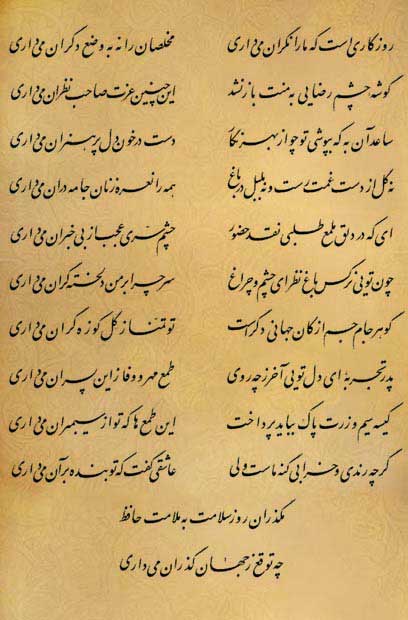 روزگاریست که ما را نگران می‌داری مخلصان را نه به وضع دگران می‌داری
گوشه چشم رضایی به منت باز نشد این چنین عزت صاحب نظران می‌داری
ساعد آن به که بپوشی تو چو از بهر نگار دست در خون دل پر هنران می‌داری
نه گل از دست غمت رست و نه بلبل در باغ همه را نعره زنان جامه دران می‌داری
ای که در دلق ملمع طلبی نقد حضور چشم سری عجب از بی خبران می‌داری
چون تویی نرگس باغ نظر ای چشم و چراغ سر چرا بر من دلخسته گران می‌داری
گوهر جام جم از کان جهانی دگر است تو تمنا ز گل کوزه گران می‌داری
پدر تجربه ای دل تویی آخر ز چه روی طمع مهر و وفا زین پسران می‌داری
کیسه سیم و زرت پاک بباید پرداخت این طمع ها که تو از سیمبران می‌داری
گرچه رندی و خرابی گنه ماست ولی عاشقی گفت که تو بنده بر آن می‌داری
مگذران روز سلامت به ملامت حافظ
چه توقع ز جهان گذران می‌داری